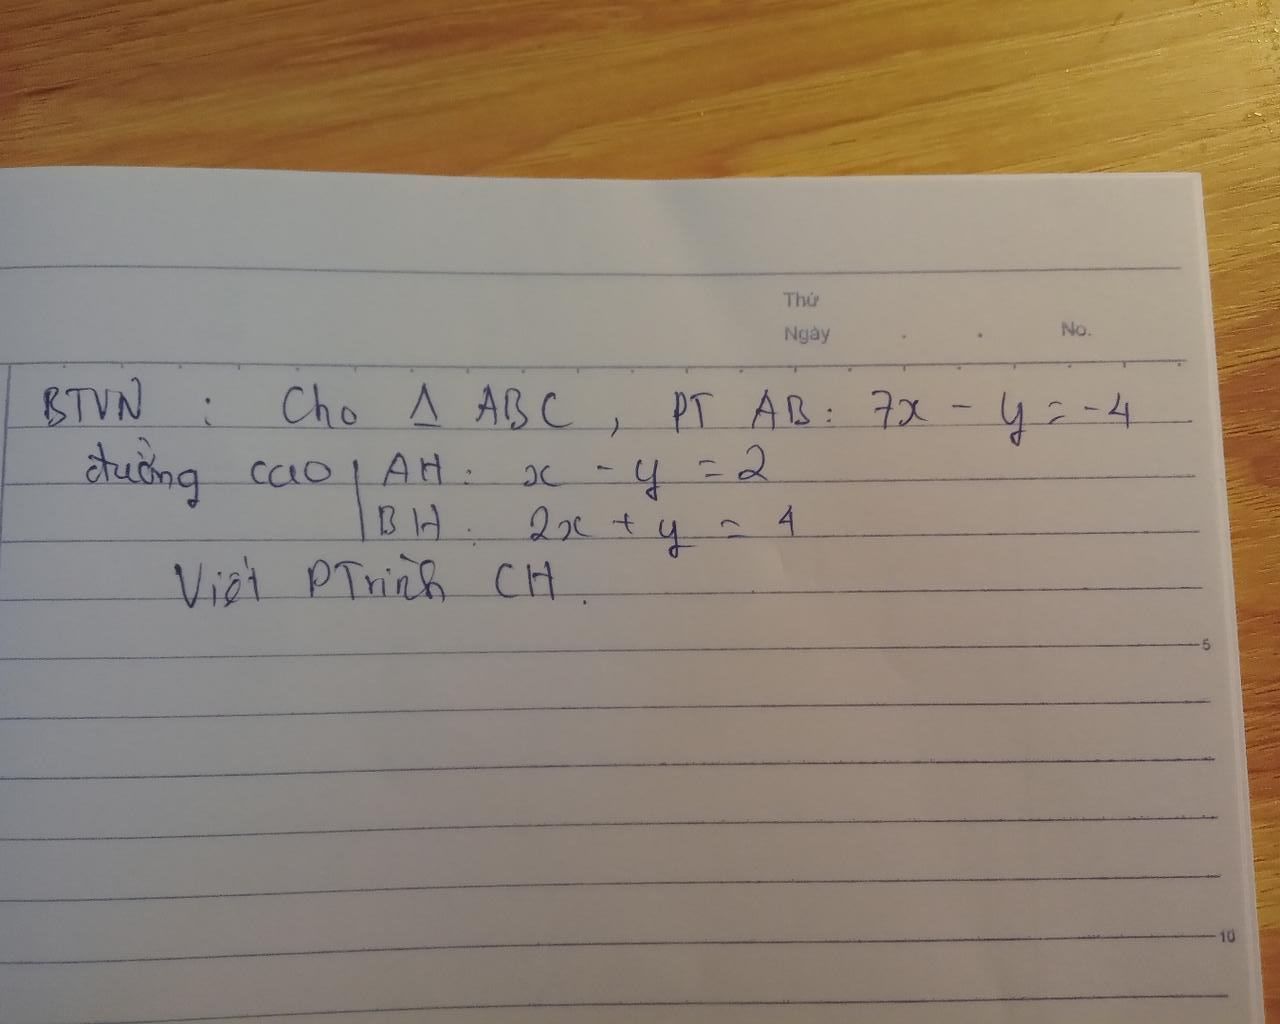 Thứ
Ngày . . No.
BTVN : Cho Δ ABC , PT AB: 7x - y = -4
đường cao | AH : x - y = 2
| BH : 2x + y = 4
Viết PTrình CH .
5
10